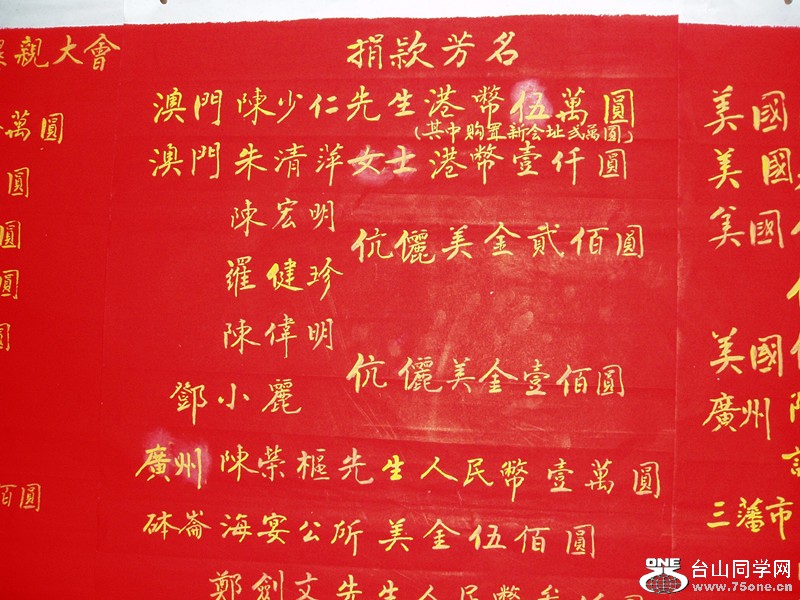 親大會
萬圓
圓
圓
圓
圓
佰圓
捐款芳名
澳門陳少仁先生港幣伍萬圓
(其中购置新会址弍萬圓)
澳門朱清萍女士港幣壹仟圓
陳宏明
伉儷美金貳佰圓
羅健珍
陳偉明
伉儷美金壹佰圓
鄧小麗
廣州陳榮樞先生人民幣壹萬圓
砵崙海宴公所美金伍佰圓
鄭劍文先生人民幣
美國
美國
美國
美國
廣州陳
三藩市
ONE
台山同学网
www.75one.cn